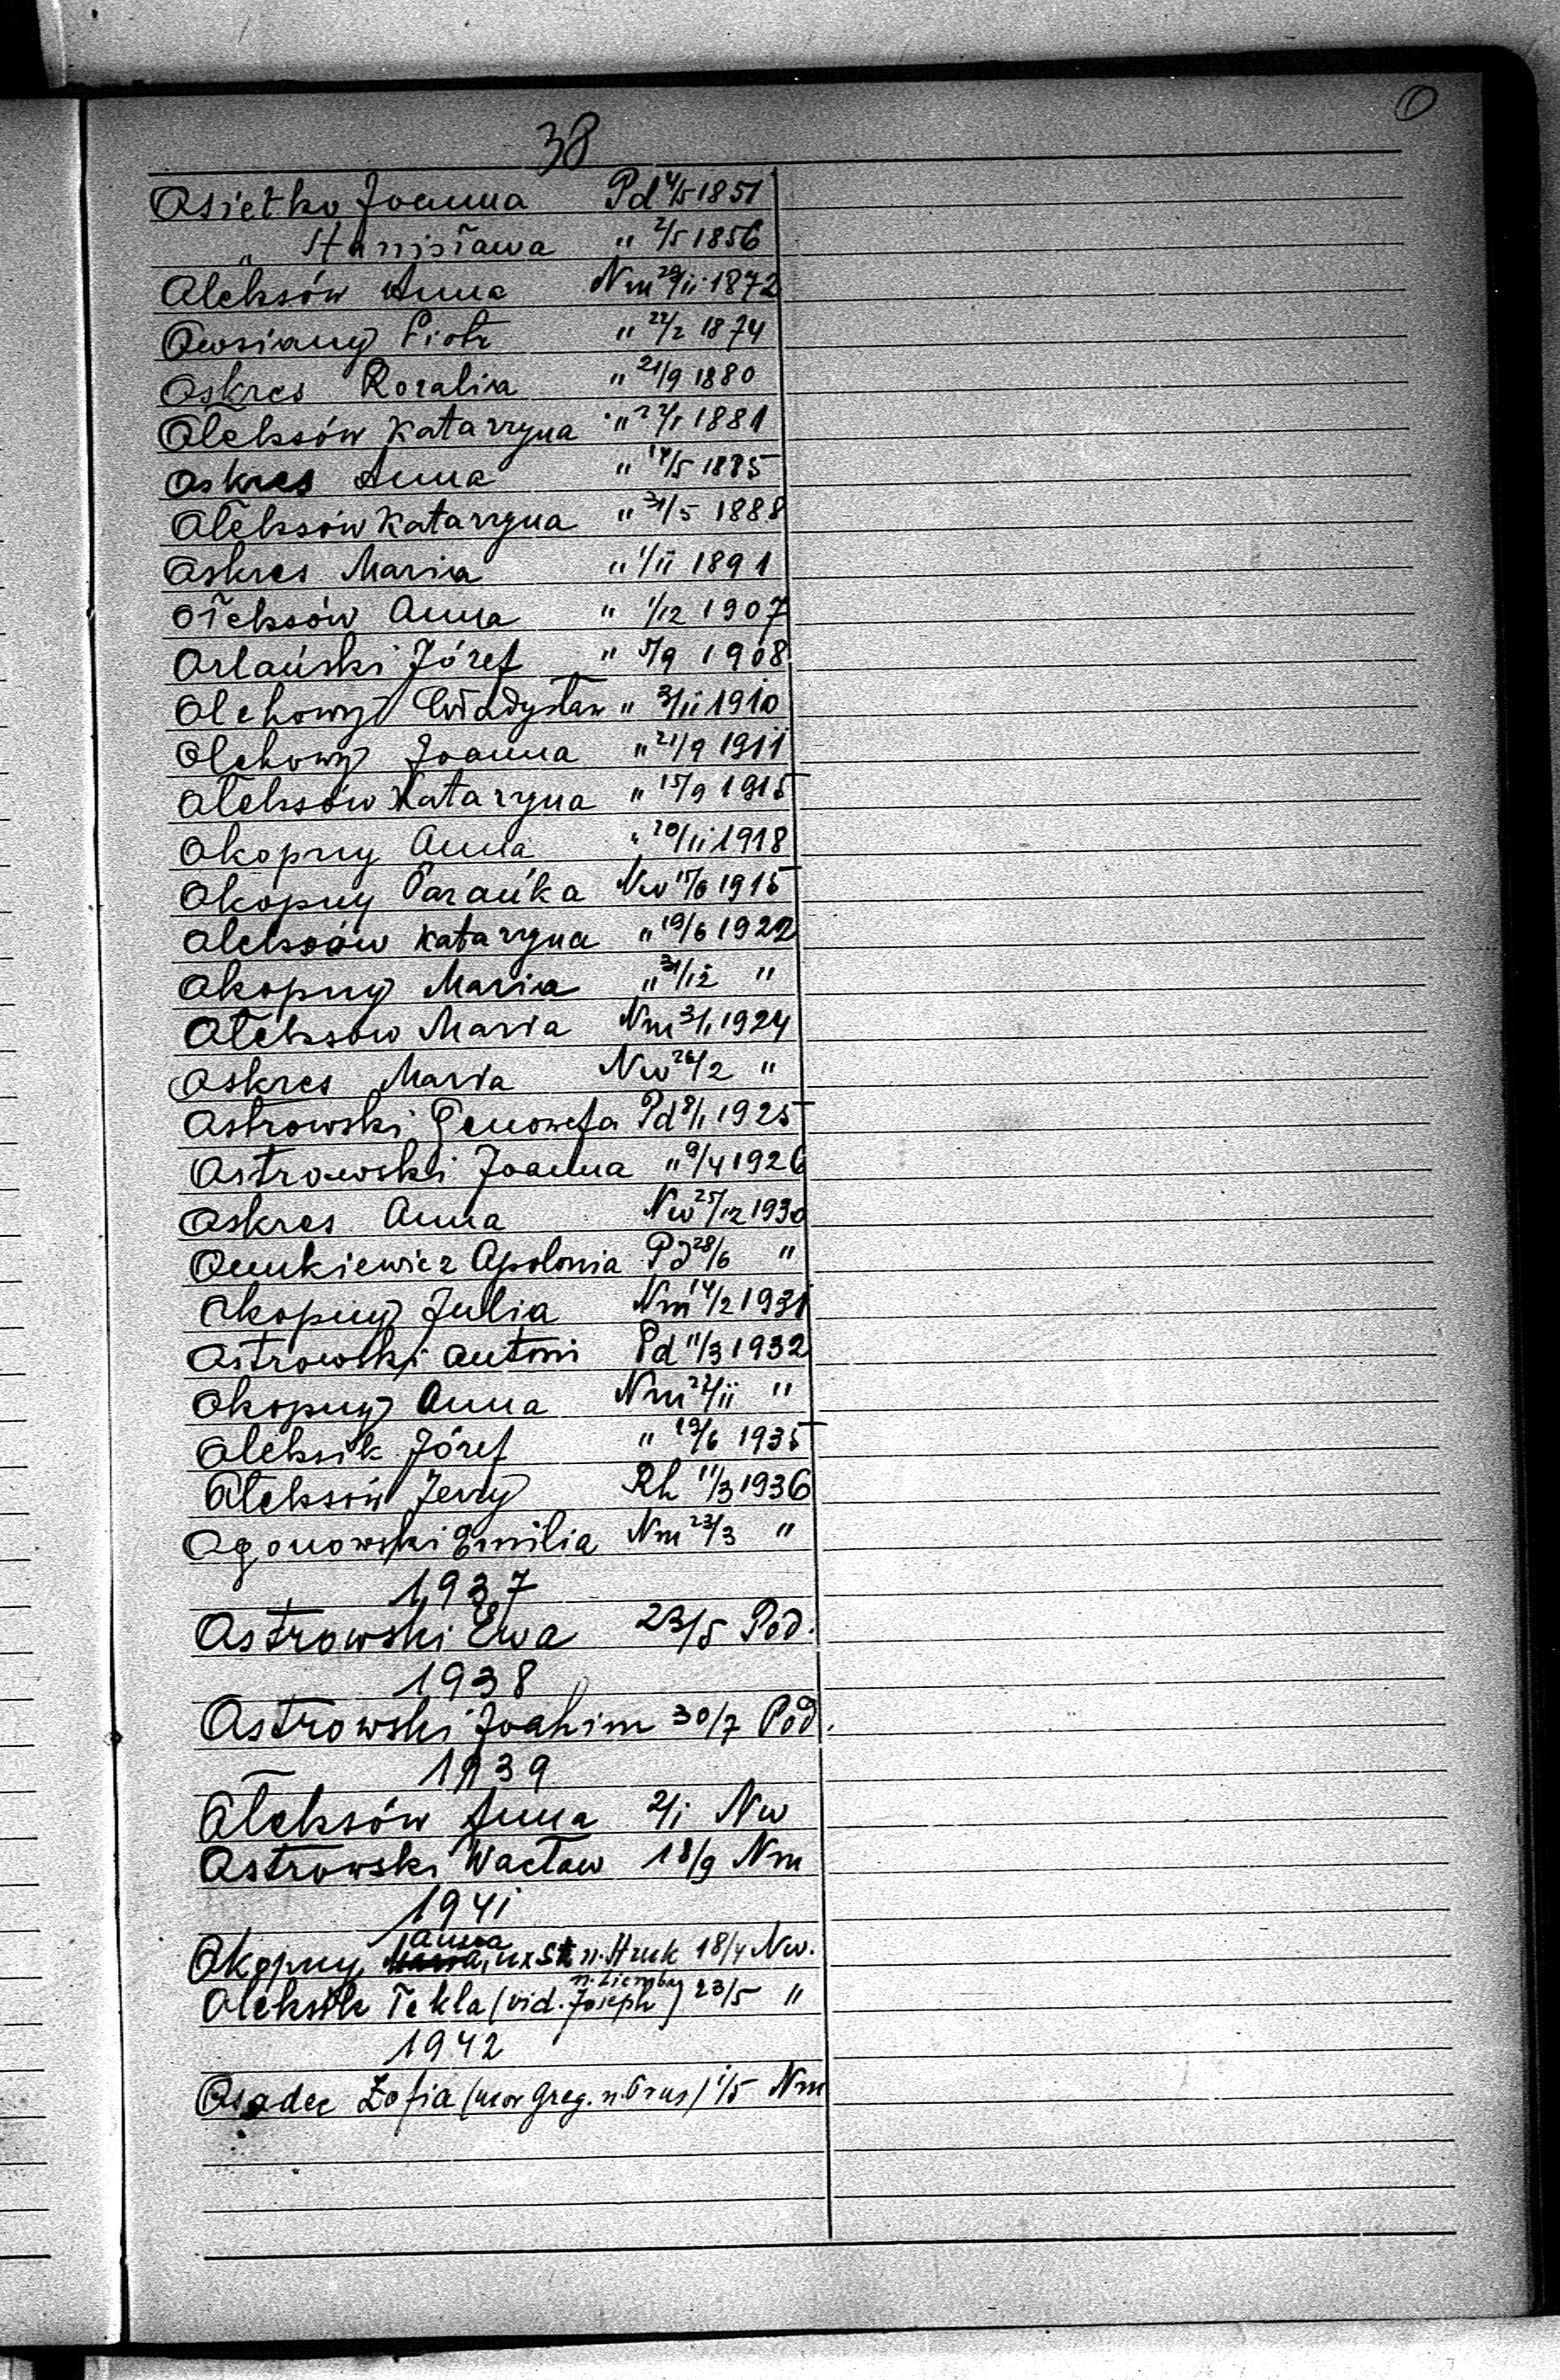 O
38
Osietko Joanna Pd 4/5 1851
" Stanisława " 2/5 1856
Oleksów Anna Nm 29/11 1872
Owsiany Piotr " 22/2 1874
Oskres Rozalia " 21/9 1880
Oleksów Katarzyna " 22/1 1881
Oskres Anna " 14/5 1885
Oleksów Katarzyna " 31/5 1888
Oskres Maria " 1/11 1891
Ołeksów Anna " 1/12 1907
Orlański Józef " 5/9 1908
Olchowy Władysław " 3/11 1910
Olchowy Joanna " 21/9 1911
Ołeksów Katarzyna " 15/9 1915
Okopny Anna " 20/11 1918
Okopny Parańka Nw 17/6 1915
Oleksów Katarzyna " 19/6 1922
Okopny Maria " 31/12 "
Ołeksów Maria Nm 3/1 1924
Oskres Maria Nw 26/2 "
Ostrowski Genowefa Pd 8/1 1925
Ostrowski Joanna " 9/4 1926
Oskres Anna Nw 25/12 1930
Apolonia Pd 28/6 "
Okopny Julia Nm 14/2 1931
Ostrowski Antoni Pd 11/3 1932
Okopny Anna Nm 22/11 "
Oleksik Józef " 19/6 1935
Ołeksów Jerzy Rh 11/3 1936
Ogonowski Emilia Nm 23/3 "
1937
Ostrowski Ewa 23/5 Pod.
1938
Ostrowski Joahim 30/7 Pod.
1939
Ołeksów Anna 2/1 Nw
Ostrowski Wacław 18/9 Nm
1941
Anna
Okopny ux St n. Hruk 18/4 Nw.
n. Ziembay
Oleksik Tekla (vid. Joseph) 23/5 "
1942
Osadec Zofia (uxor Greg. n. Prus) 1/5 Nm